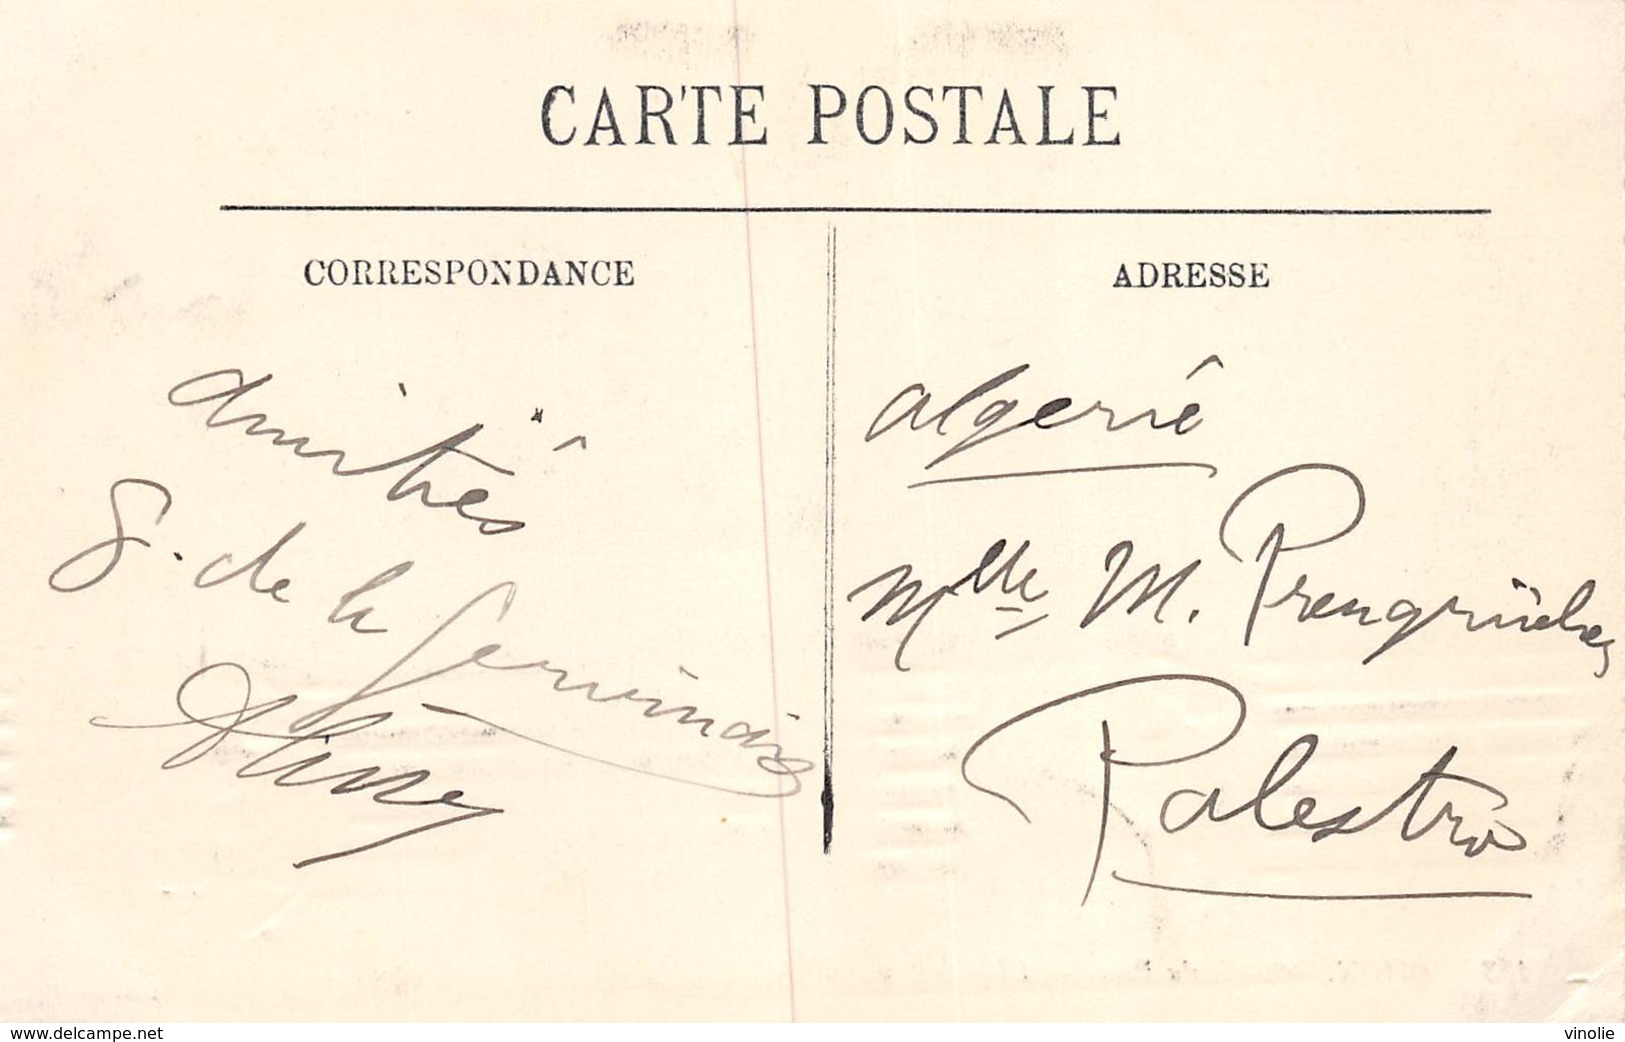 CARTE POSTALE
CORRESPONDANCE
ADRESSE
Amitiés
de la
Algerie
Mlle M.
Palestro
www.delcampe.net
vinolie